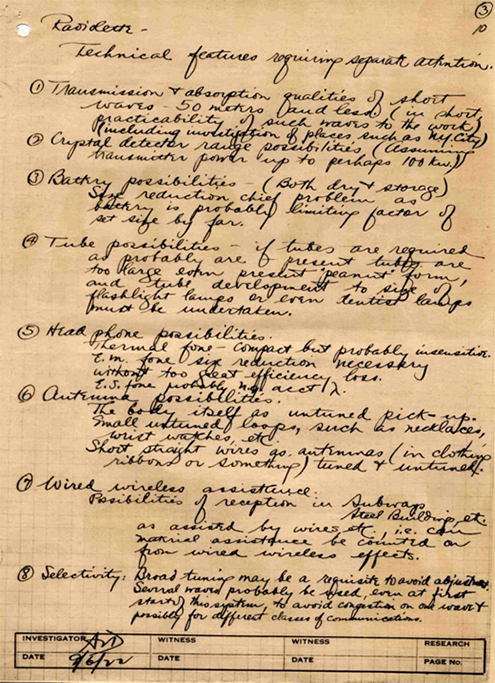 3
10
Radidette -
Technical features requiring separate attention.
① Transmission & absorption qualities of short
waves - 50 meters (and less) (in short,
practicability of such waves to the work)
(including investigation of places such as N.Y. City)
② Crystal detector range possibilities (Assuming
transmitter power up to perhaps 100 kw.)
③ Battery possibilities - (Both dry & storage)
Size reduction chief problem as
battery is probably limiting factor of
set size by far.
④ Tube possibilities - if tubes are required
as probably are if present tubes are
too large even present "peanut" form,
and tube development to size of
flashlight lamps or even dentist lamps
must be undertaken.
⑤ Head phone possibilities.
Thermal fone - compact but probably insensitive.
E.M. fone size reduction necessary
without too great efficiency loss.
E.S. fone probably n.g. acct λ.
⑥ Antenna possibilities.
The body itself as untuned pick-up.
Small untuned loops, such as necklaces,
wrist watches, etc.
Short straight wires as antennas (in clothing
ribbons or something) tuned & untuned.
⑦ Wired wireless assistance.
Possibilities of reception in Subways
Steel Building, etc.
as assisted by wires, etc., i.e. can
material assistance be counted on
from wired wireless effects.
⑧ Selectivity: Broad tuning may be a requisite to avoid adjustment.
Several waves probably be used, even at first
start of this system, to avoid congestion on one wave &
possibly for different classes of communications.
INVESTIGATOR WITNESS WITNESS RESEARCH
DATE 9/6/22 DATE DATE PAGE No.